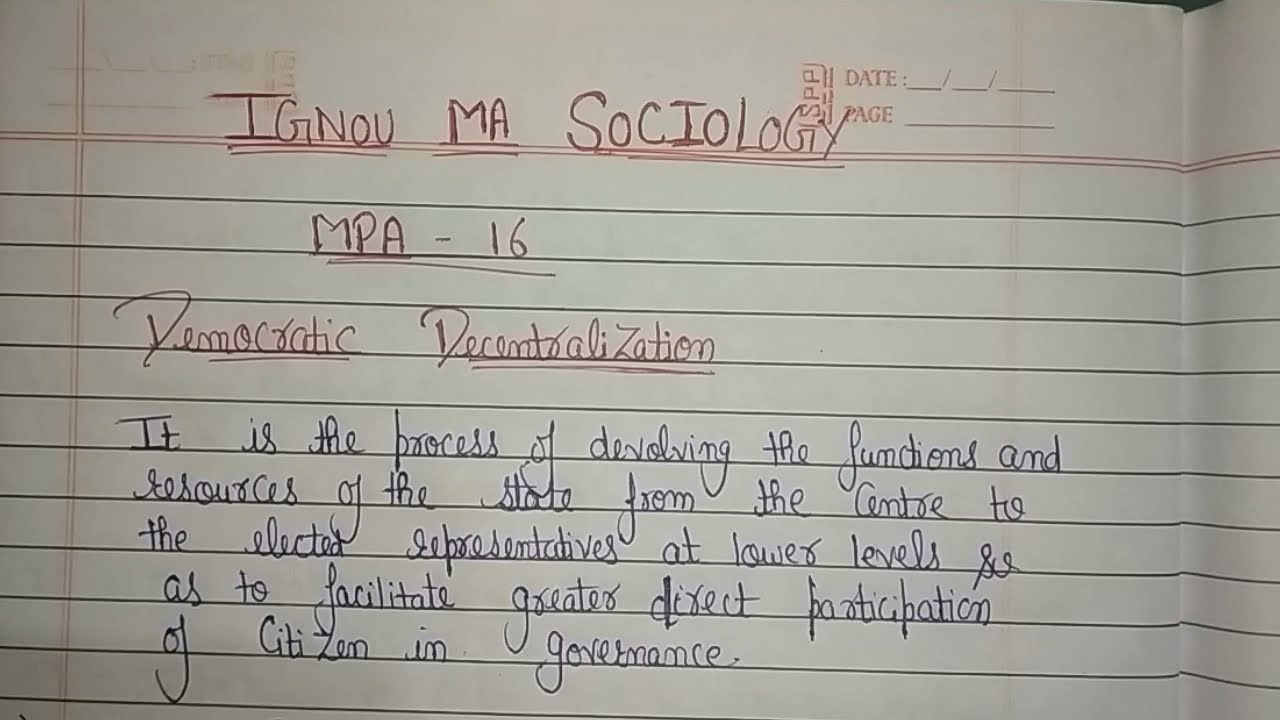 DATE: __/__/____
IGNOU MA SOCIOLOGY
PAGE ________
MPA - 16
Democratic Decentralization
It is the process of devolving the functions and
resources of the state from the Centre to
the elected representatives at lower levels so
as to facilitate greater direct participation
of CitiZen in governance.